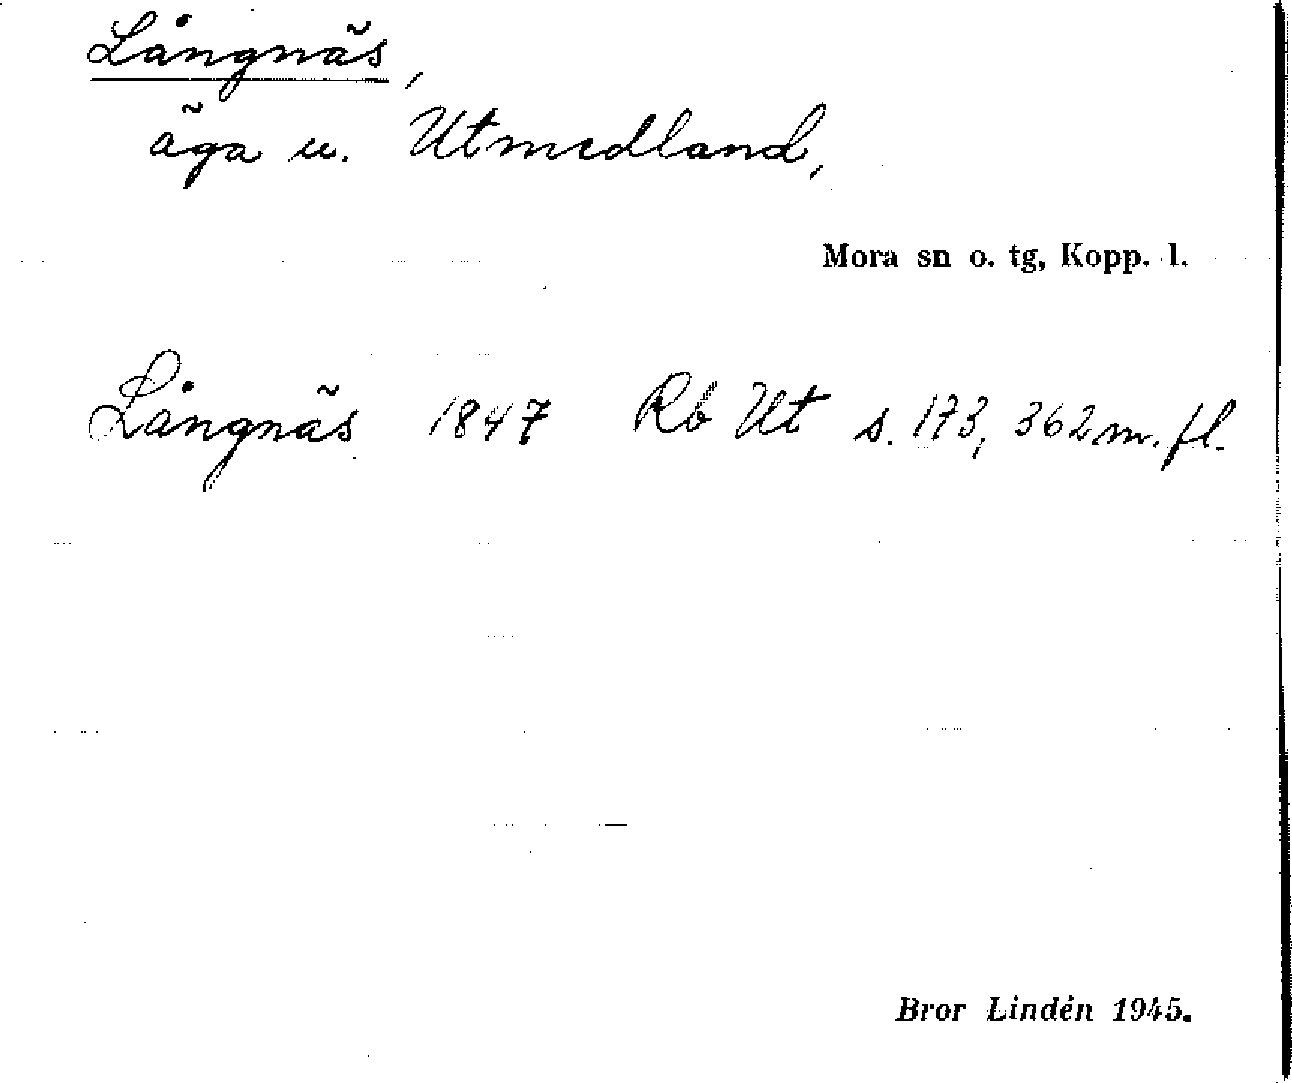 Långnäs,
äga u. Utmedland,
Mora sn o. tg, Kopp. l.
Långnäs 1847 Rb Ut s. 173, 362 m. fl.
Bror Lindén 1945.